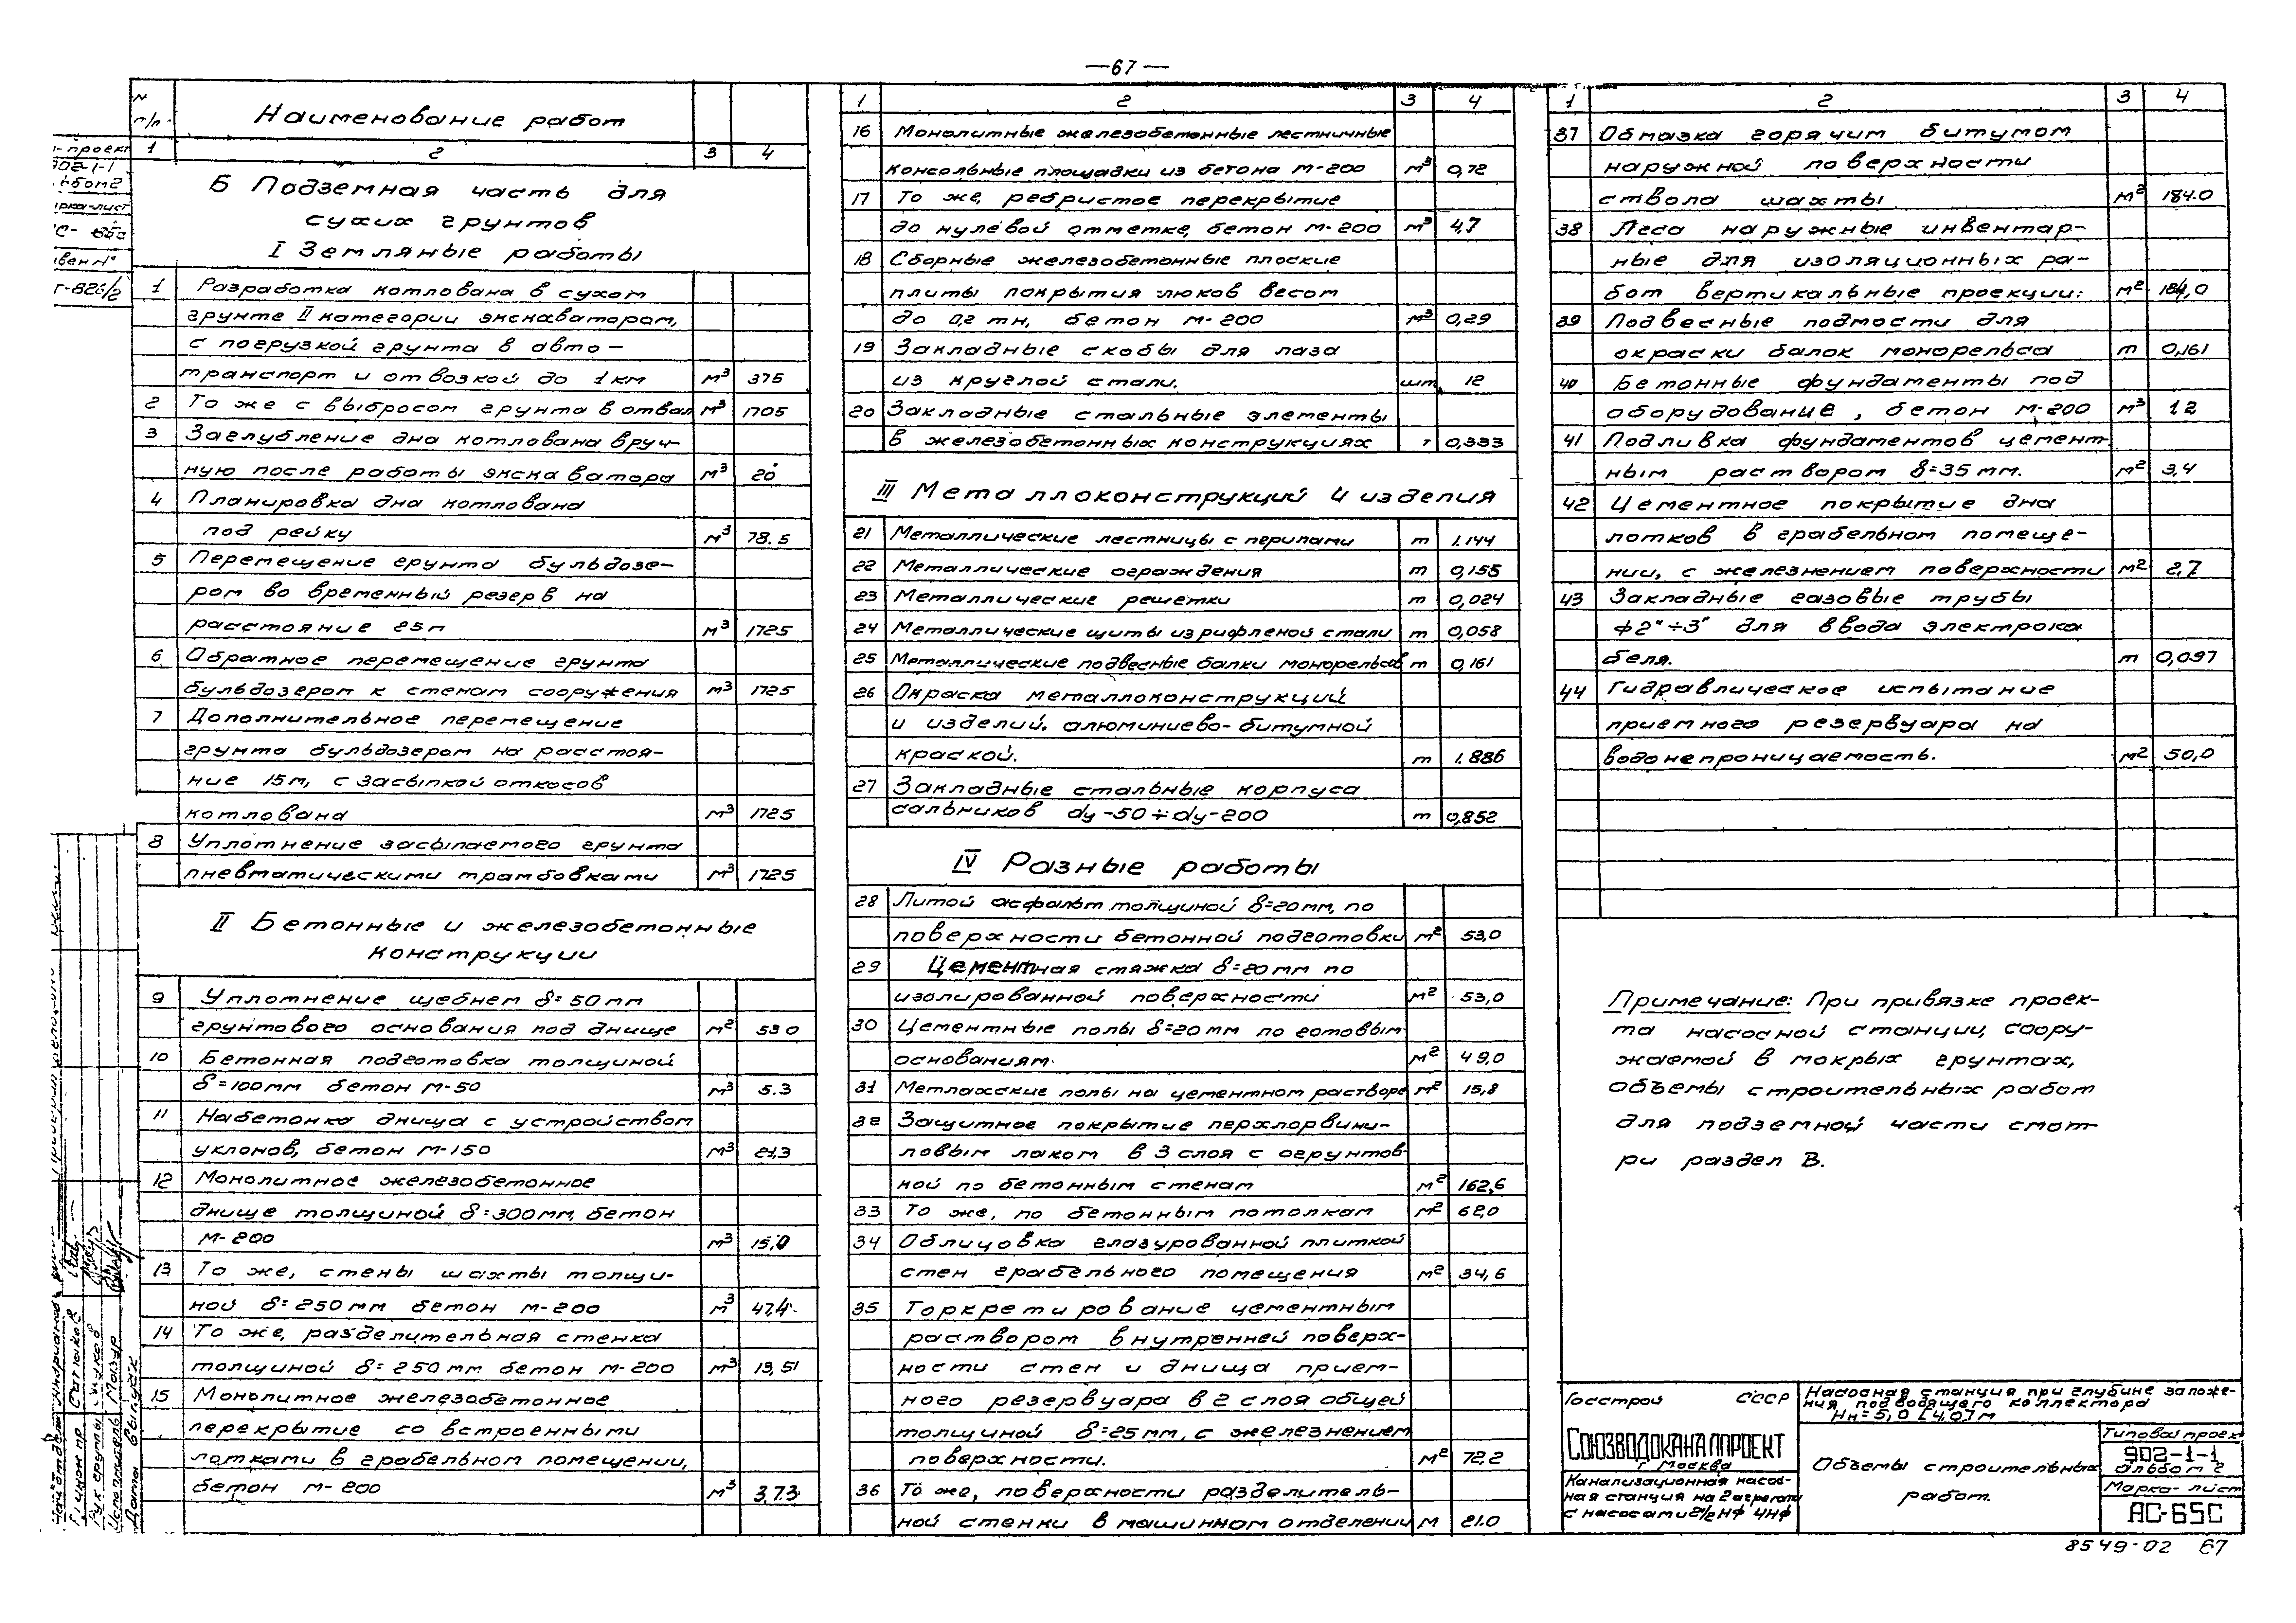 —67—
N п/п Наименование работ
1 2 3 4
Б Подземная часть для
сухих грунтов
I Земляные работы
1 Разработка котлована в сухом
грунте II категории экскаватором,
с погрузкой грунта в авто—
транспорт и отвозкой до 1 км м³ 375
2 То же с выбросом грунта в отвал м³ 1705
3 Заглубление дна котлована вруч-
ную после работы экскаватора м³ 20
4 Планировка дна котлована
под рейку м³ 78.5
5 Перемещение грунта бульдозе—
ром во временный резерв на
расстояние 25м м³ 1725
6 Обратное перемещение грунта
бульдозером к стенам сооружения м³ 1725
7 Дополнительное перемещение
грунта бульдозером на расстоя-
ние 15м, с засыпкой откосов
котлована м³ 1725
8 Уплотнение засыпаемого грунта
пневматическими трамбовками м³ 1725
II Бетонные и железобетонные
конструкции
9 Уплотнение щебнем δ=50мм
грунтового основания под днище м² 53 0
10 Бетонная подготовка толщиной
δ=100мм бетон М-50 м³ 5.3
11 Набетонка днища с устройством
уклонов, бетон М-150 м³ 21,3
12 Монолитное железобетонное
днище толщиной δ=300мм, бетон
М-200 м³ 15,0
13 То же, стены шахты толщи-
ной δ=250мм бетон М-200 м³ 47,4
14 То же, разделительная стенка
толщиной δ=250мм бетон М-200 м³ 13,51
15 Монолитное железобетонное
перекрытие со встроенными
лотками в грабельном помещении,
бетон М-200 м³ 3.73
1 2 3 4
16 Монолитные железобетонные лестничные
консольные площадки из бетона М-200 м³ 0,72
17 То же, ребристое перекрытие
до нулевой отметке, бетон М-200 м³ 4,7
18 Сборные железобетонные плоские
плиты покрытия люков весом
до 0,2 тн, бетон М-200 м³ 0,29
19 Закладные скобы для лаза
из круглой стали. шт 12
20 Закладные стальные элементы
в железобетонных конструкциях т 0,333
III Металлоконструкций и изделия
21 Металлические лестницы с перилами т 1.144
22 Металлические ограждения т 0,155
23 Металлические решетки т 0,024
24 Металлические щиты из рифленой стали т 0,058
25 Металлические подвесные балки монорельсов т 0,161
26 Окраска металлоконструкций
и изделий. алюминиево-битумной
краской. т 1.886
27 Закладные стальные корпуса
сальников dу-50÷dу-200 т 0,852
IV Разные работы
28 Литой асфальт толщиной δ=20мм, по
поверхности бетонной подготовки м² 53,0
29 Цементная стяжка δ=20мм по
изолированной поверхности м² 53,0
30 Цементные полы δ=20мм по готовым
основаниям. м² 49,0
31 Метлахские полы на цементном растворе м² 15,8
32 Защитное покрытие перхлорвини-
ловым лаком в 3 слоя с огрунтов-
ной по бетонным стенам м² 162,6
33 То же, по бетонным потолкам м² 62,0
34 Облицовка глазурованной плиткой
стен грабельного помещения м² 34,6
35 Торкретирование цементным
раствором внутренней поверх-
ности стен и днища прием-
ного резервуара в 2 слоя общей
толщиной δ=25мм, с железнением
поверхности. м² 72,2
36 То же, поверхности разделитель-
ной стенки в машинном отделении м 21.0
1 2 3 4
37 Обмазка горячим битумом
наружной поверхности
ствола шахты м² 184.0
38 Леса наружные инвентар-
ные для изоляционных ра-
бот вертикальные проекции: м² 184,0
39 Подвесные подмости для
окраски балок монорельса т 0,161
40 Бетонные фундаменты под
оборудование, бетон М-200 м³ 1.2
41 Подливка фундаментов цемент-
ным раствором δ=35мм. м² 3,4
42 Цементное покрытие дна
лотков в грабельном помеще-
нии, с железнением поверхности м² 2,7
43 Закладные газовые трубы
ф2"÷3" для ввода электрока
беля. т 0,097
44 Гидравлическое испытание
приемного резервуара на
водонепроницаемость. м² 50,0
Примечание: При привязке проек-
та насосной станции, соору-
жаемой в мокрых грунтах,
объемы строительных работ
для подземной части смот-
ри раздел В.
Госстрой СССР
СОЮЗВОДОКАНАЛПРОЕКТ
г Москва
Канализационная насос-
ная станция на 2 агрегата
с насосами 2½ НФ 4НФ
Насосная станция при глубине заложе-
ния подводящего коллектора
Нн=5,0 [4,0]м
Объемы строительных
работ.
Типовой проект
902-1-1
альбом 2
Марка-лист
АС-65С
8549-02 67